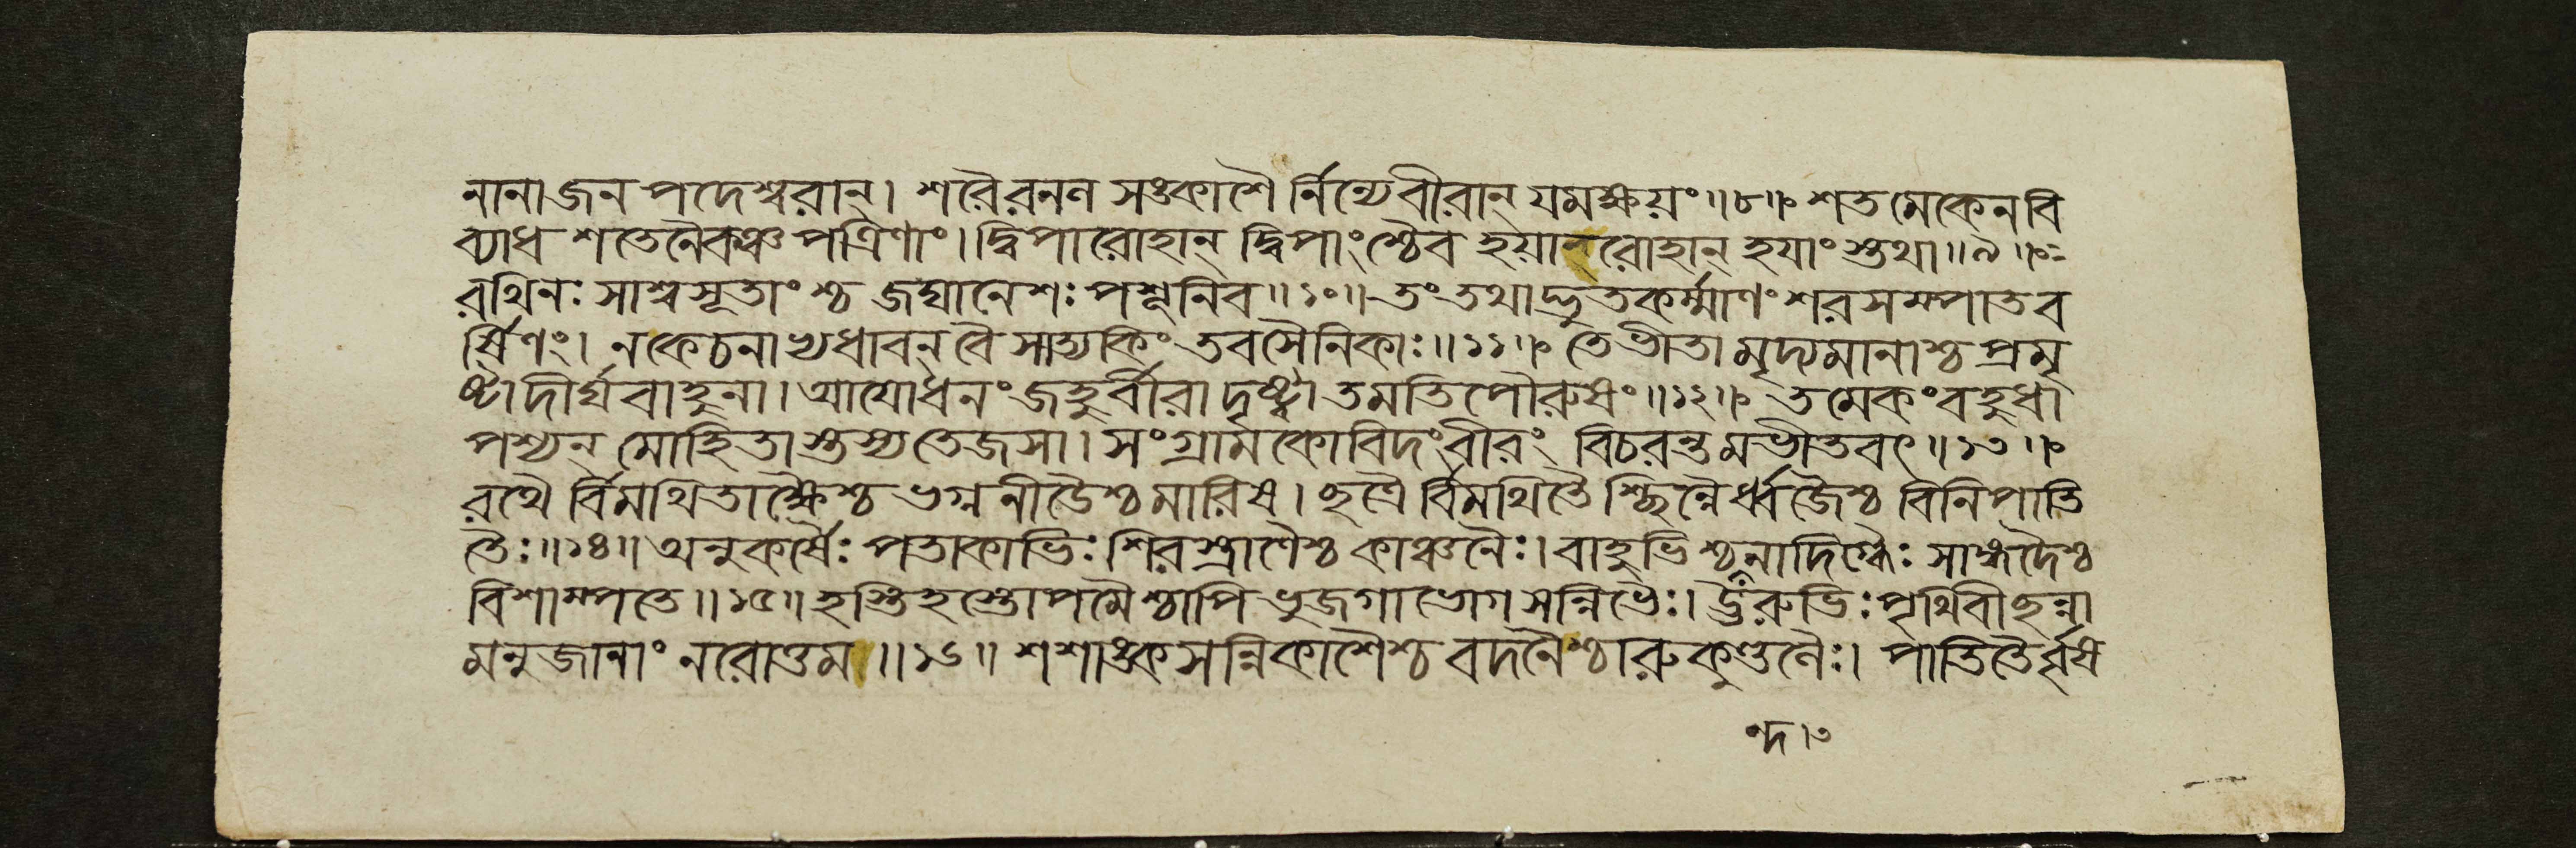 নানাজনপদেশ্বরান্। শরৈরনল সঙ্কাশৈ র্নিন্যেবীরান্ যমক্ষয়ং॥৮॥ শতমেকেনবি
ব্যাধ শতেনৈকঞ্চ পত্রিণাং। দ্বিপারোহান্ দ্বিপাংশ্চৈব হয়ান্রোহান্ হযাংস্তথা॥৯॥
রথিনঃ সাশ্বসূতাংশ্চ জঘানেশঃ পশূনিব॥১০॥ তং তথাদ্ভুতকর্ম্মাণং শরসম্পাতব
র্ষিণং। নকেচনাভ্যধাবন্ বৈ সাত্যকিং তবসৈনিকাঃ॥১১॥ তেভীতা মৃদ্যমানাশ্চ প্রমৃ
ষ্টাদীর্ঘবাহুনা। আযোধনং জহুর্বীরা দৃষ্ট্বা তমতিপৌরুষং॥১২॥ তমেকং বহুধা
পশ্যন্ মোহিতাস্তস্য তেজসা। সংগ্রামকোবিদংবীরং বিচরন্তমভীতবৎ॥১৩॥
রথৈ র্বিমথিতাক্ষৈশ্চ ভগ্ননীডৈশ্চ মারিষ। ছত্রৈ র্বিমথিতৈ শ্ছিন্নৈর্ধ্বজৈশ্চ বিনিপাতি
তৈঃ॥১৪॥ অনুকর্ষৈঃ পতাকাভিঃ শিরস্ত্রাণৈশ্চ কাঞ্চনৈঃ। বাহুভিশ্চন্দনাদিগ্ধৈঃ সাঙ্গদৈশ্চ
বিশাম্পতে॥১৫॥ হস্তিহস্তোপমৈশ্চাপি ভুজগাভোগসন্নিভৈঃ। ঊরুভিঃ পৃথিবীছন্না
মনুজানাং নরোত্তম॥১৬॥ শশাঙ্কসন্নিকাশৈশ্চ বদনৈশ্চারুকুণ্ডলৈঃ। পাতিতৈর্বৃষ
ন্দ।৩